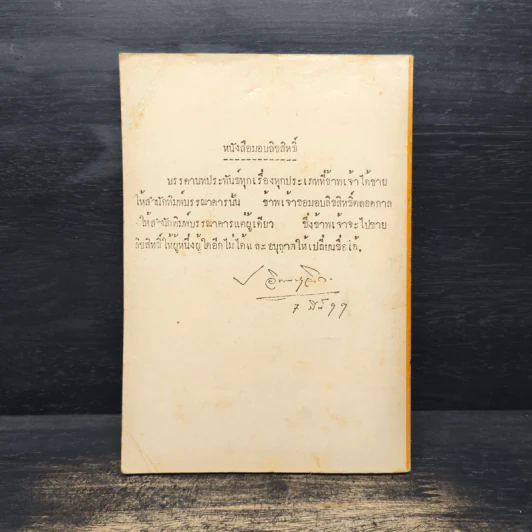 หนังสือมอบลิขสิทธิ์
บรรดาบทประพันธ์ทุกเรื่องทุกประเภทที่ข้าพเจ้าได้ขาย
ให้สำนักพิมพ์บรรณาคารนั้น ข้าพเจ้าขอมอบลิขสิทธิ์ตลอดกาล
ให้สำนักพิมพ์บรรณาคารแต่ผู้เดียว ซึ่งข้าพเจ้าจะไปขาย
ลิขสิทธิ์ให้ผู้หนึ่งผู้ใดอีกไม่ได้และอนุญาตให้เปลี่ยนชื่อได้.